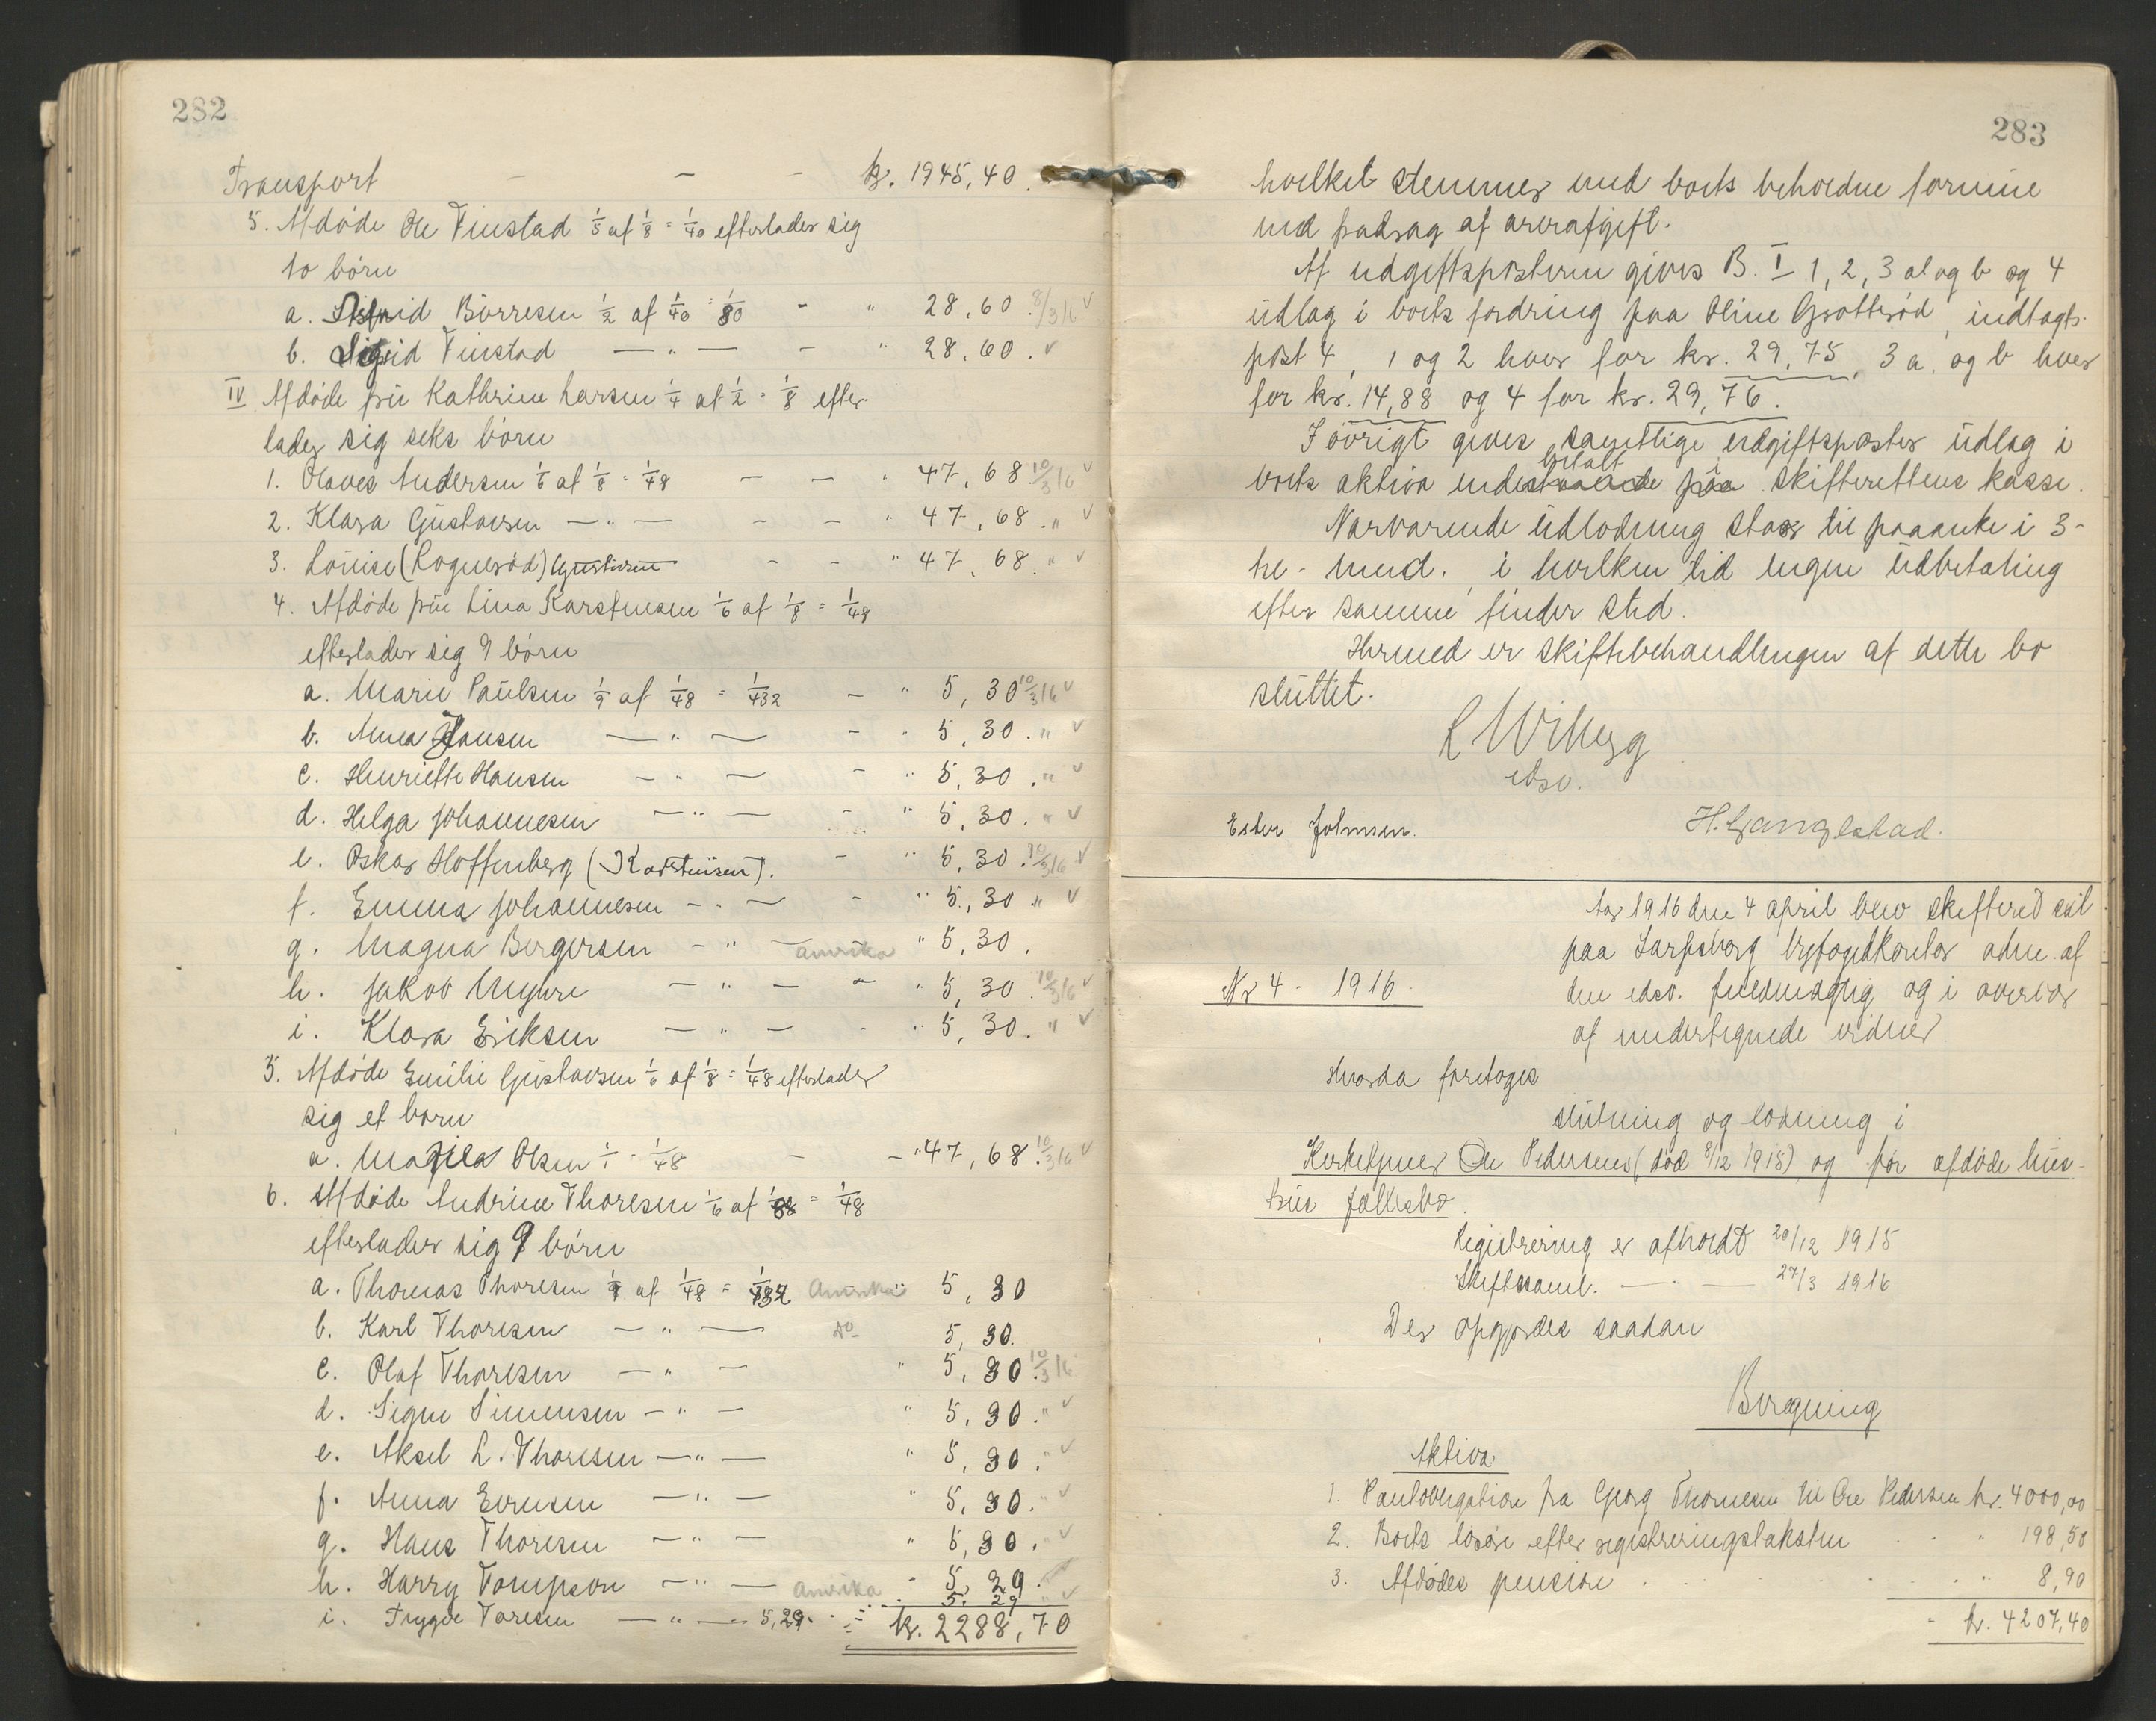 282
Transport - - - kr. 1945,40.
5. Afdøde Ole Finstad 1/5 af 1/8 = 1/40 efterlader sig
to børn
a. Børresen 1/2 af 1/40 = 1/80 - " 28,60. 8/3 16 √
b. Sigrid Finstad — " — - " 28,60. √
IV Afdøde fru Kathrine Larsen 1/4 af 1/2 = 1/8 efter-
lader sig seks børn
1. Olaves Andersen 1/6 af 1/8 = 1/48 - - " 47,68 10/3 16 √
2. Klara Gustavsen — " — - - " 47,68. " √
3. Louise (Rognerød) Gustavsen - - " 47,68. " √
4. Afdøde fru Lina Karstensen 1/6 af 1/8 = 1/48
efterlader sig 9 børn
a. Marie Paulsen 1/9 af 1/48 = 1/432 - " 5,30 10/3 16 √
b. Anna Hansen — " — - " 5,30. " √
c. Henriette Hansen — " — - " 5,30. " √
d. Helga Johannesen — " — - " 5,30. " √
e. Oskar Hoffenberg (Karstensen). - " 5,30. 10/3 16 √
f. Emma Johannesen — " — - " 5,30 " √
g. Magna Bergersen — " — Amerika " 5,30.
h. Jakob Myhre — " — - " 5,30. 10/3 16 √
i. Klara Eriksen — " — - " 5,30. " √
5. Afdøde Emilie Gustavsen 1/6 af 1/8 = 1/48 efterlader
sig et barn
a. Olsen 1/1 - 1/48 - - " 47,68. 10/3 16 √
6. Afdøde Andrine Thoresen 1/6 af 1/8 = 1/48
efterlader sig 9 børn
a. Thomas Thoresen 1/9 af 1/48 = 1/432 Amerika " 5,30
b. Karl Thoresen — " — do 5,30.
c. Olaf Thoresen — " — " 5,30 10/3 16
d. Signe Simensen — " — " 5,30. " √
e. Aksel L. Thoresen — " — " 5,30. " √
f. Anna Evensen — " — " 5,30. " √
g. Hans Thoresen — " — " 5,30. " √
h. Harry Tompson — " — Amerika " 5,29.
i. Trygve Toresen — " — 5,29. " 5.29 " √
kr. 2288,70
283
hvilket stemmer med boets beholdne formue
med fradrag af arveafgift.
Af udgiftsposterne gives B. I 1, 2, 3 a og b og 4
udlag i boets fordring paa Oline Grotterød, indtægts-
post 4, 1 og 2 hver for kr. 29,75, 3 a. og b hver
for kr. 14,88 og 4 for kr. 29,76.
I øvrigt gives samtlige udgiftsposter udlag i
boets aktiva indestaaende paa betalt i skifterettens kasse.
Nærværende udlodning staar til paaanke i 3-
tre - mnd. i hvilken tid ingen udbetaling
efter samme finder sted.
Hermed er skiftebehandlingen af dette bo
sluttet.
L Wiberg
edsv.
Ester Johnsen. H. Gangestad.
Aar 1916 den 4 april blev skifteret sat
paa Sarpsborg byfogedkontor adm. af
den edsv. fuldmægtig og i overvær
af undertegnede vidner
Nr 4 - 1916.
Hvorda foretoges
slutning og lodning i
Kirketjener Ole Pedersens (død 8/12 1915) og før afdøde hus-
trus fællesbo.
Registrering er afholdt 20/12 1915
Skiftesaml. — " — 27/3 1916
Der opgjordes saadan
Beregning
Aktiva
1. Pantobligation fra Georg Thomesen til Ole Pedersen kr. 4000,00
2. Boets løsøre efter registreringstaksten . " 198,50
3. Afdødes pension . . . " 8,90
- kr. 4207,40